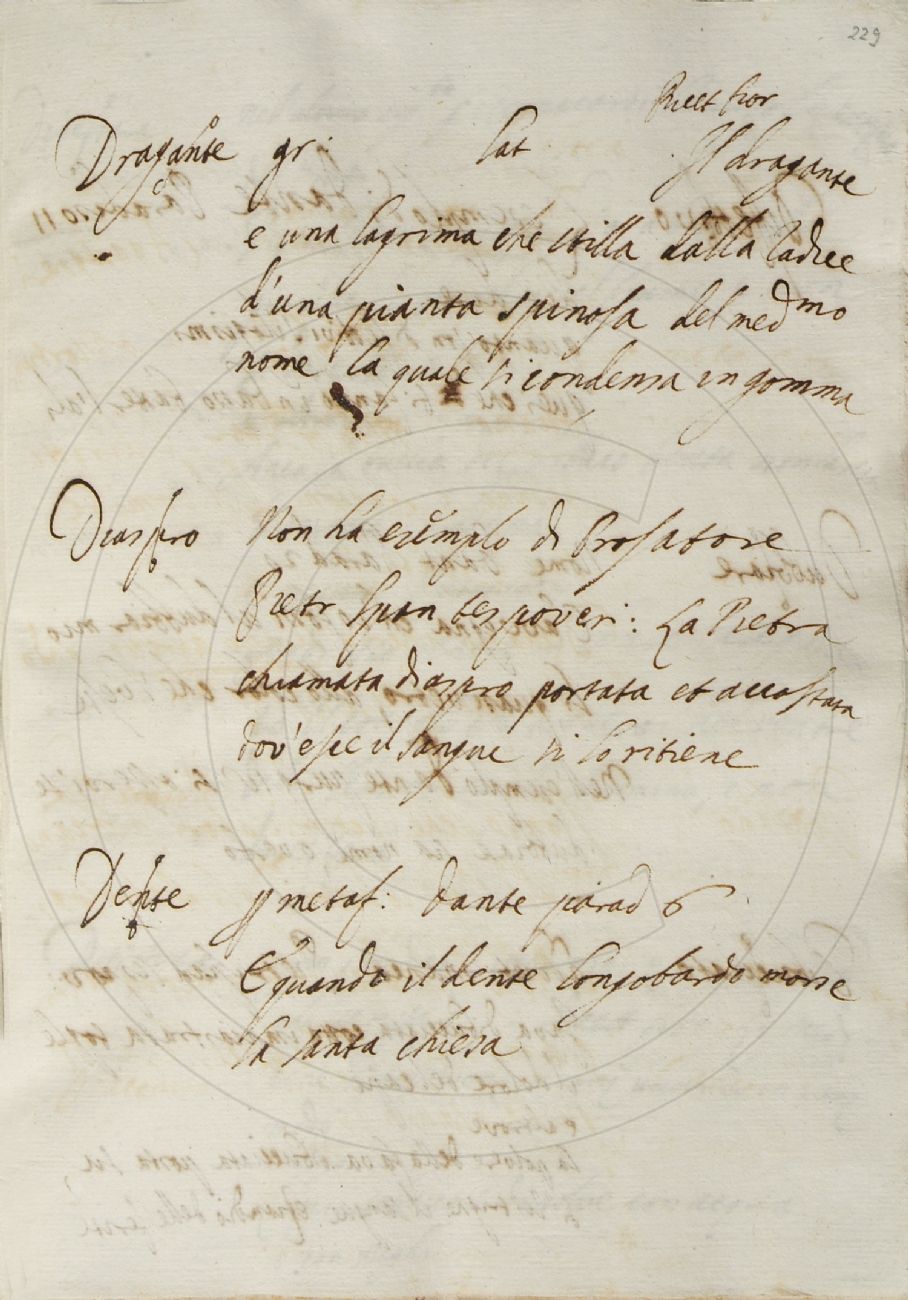 229
Ricet fior
Dragante gr: lat Il dragante
e una lagrima che stilla dalla radice
d'una pianta spinosa del med.mo
nome la quale si condensa in gomma
Diaspro Non ha esempio di Prosatore
Pietr span tes poveri: La Pietra
chiamata diaspro portata et accostata
dov'esce il sangue si lo ritiene
Dente p metaf: dante parad 6
E quando il dente longobardo morse
la santa chiesa